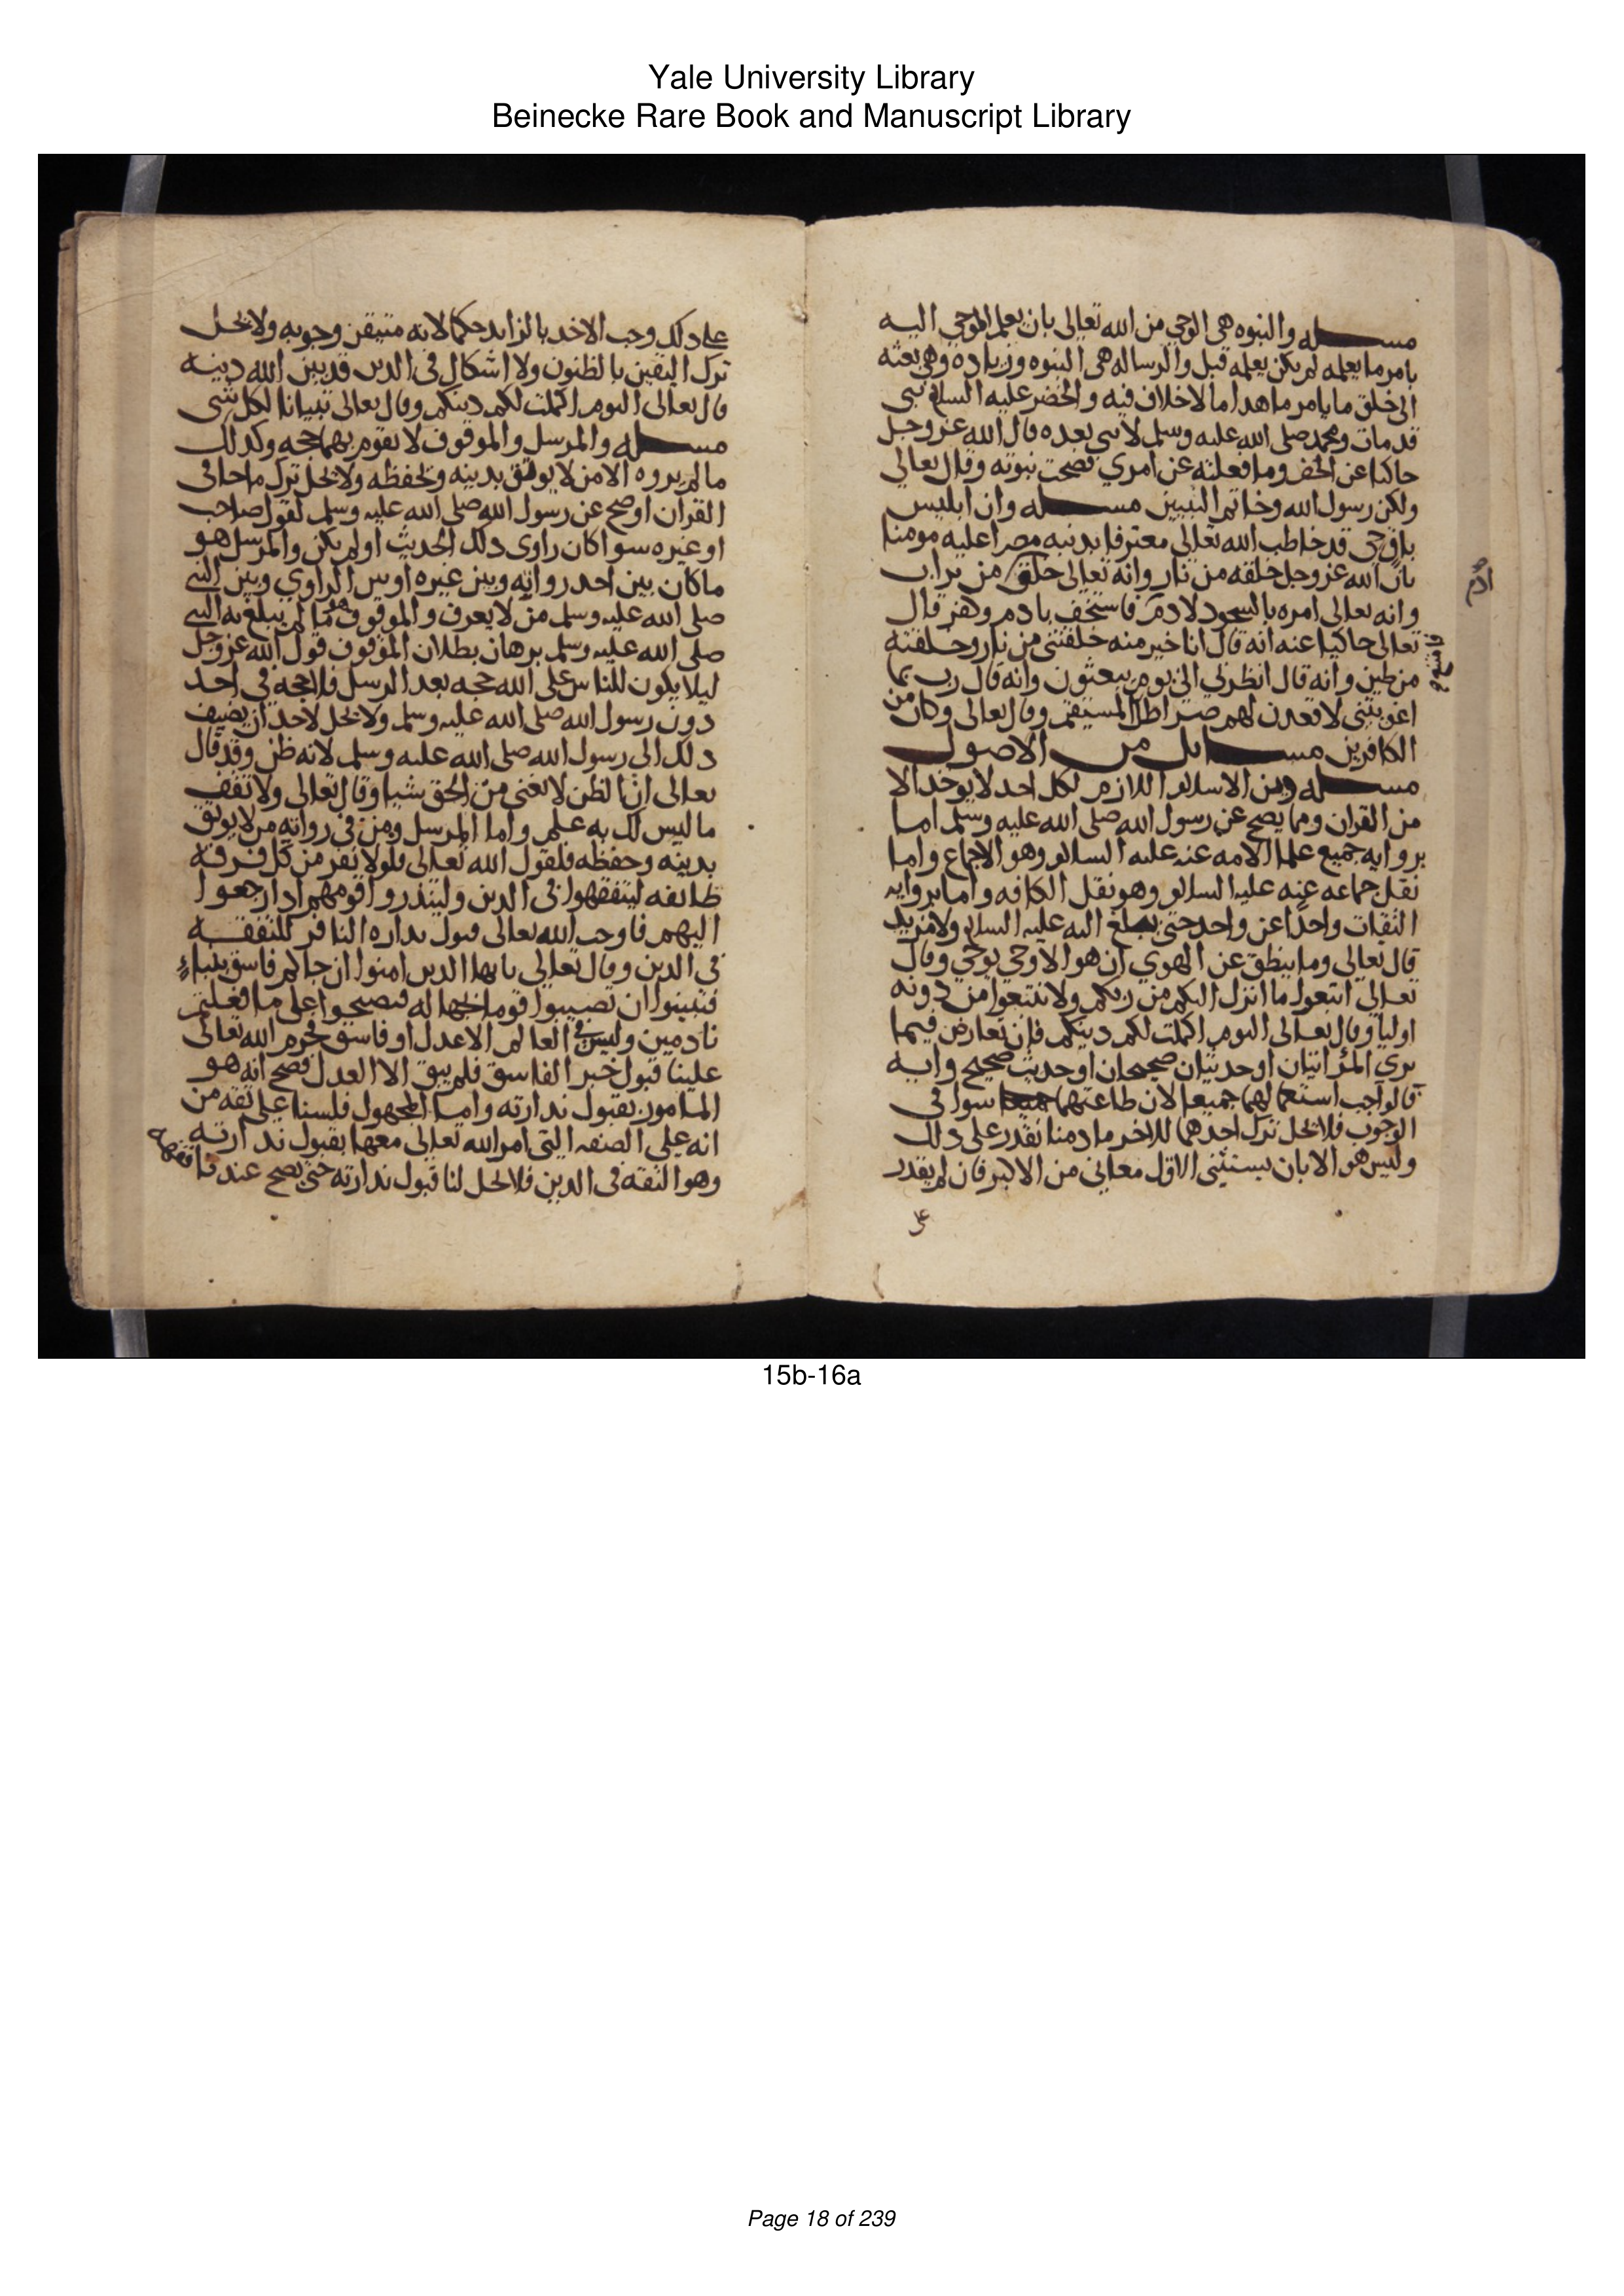 Yale University Library
Beinecke Rare Book and Manuscript Library
مسىله والنبوه هى الوحي من الله تعالى بان يعلم الموحي اليه
بامر ما يعلمه لم يكن يعلمه قبل والرساله هى النبوه وزياده وهى بعثه
الى خلق ما بامر ما هدا ما لاخلاف فيه والخضر عليه السلام نبى
قد مات ومحمد صلى الله عليه وسلم لا نبى بعده قال الله عز وجل
حاكيا عن الخضر وما فعلته عن امري فصحت نبوته وقال تعالى
ولكن رسول الله وخاتم النبيين مسىله وان ابليس
باق حى قد خاطب الله تعالى معترفا بدنبه مصرا عليه مومنا
بان الله عز وجل خلقه من نار وانه تعالى خلق من تراب
ادم
وانه تعالى امره بالسجود لادم فاستخف بادم وكفر قال
تعالى حاكيا عنه انه قال انا خير منه خلقتنى من نار وخلقته
من طين وانه قال انظرني الى يوم يبعثون وانه قال رب بما
اغويتنى لاقعدن لهم صراطك المستقيم وقال تعالى وكان من
الكافرين مسايل من الاصول
مسىله ودين الاسلام اللازم لكل احد لا يوخد الا
من القران ومما يصح عن رسول الله صلى الله عليه وسلم اما
بروايه جميع علما الامه عنه عليه السلام وهو الاجماع واما
نقل جماعه عنه عليه السلام وهو نقل الكافه واما بروايه
الثقات واحدا عن واحد حتى يبلغ اليه عليه السلام ولا مزيد
قال تعالى وما ينطق عن الهوي ان هو الا وحي يوحي وقال
تعالى اتبعوا ما انزل اليكم من ربكم ولا تتبعوا من دونه
اوليا وقال تعالى اليوم اكملت لكم دينكم فان تعارض فيما
يري المر ايتان او حديثان صحيحان او حديث صحيح وايه
فالواجب استعمالهما جميعا لان طاعتهما سوا فى
الوجوب فلا يحل ترك احدهما للاخر ما دمنا نقدر على دلك
وليس هو الا بان يستثنى الاقل معانى من الاكبر فان لم يقدر
على
على دلك وجب الاخد بالزايد حكما لانه متيقن وجوبه ولا يحل
ترك اليقين بالظنون ولا اشكال فى الدين قد بين الله دينه
قال تعالى اليوم اكملت لكم دينكم وقال تعالى تبيانا لكل شى
مسىله والمرسل والموقوف لا تقوم بهما حجه وكدلك
ما لم يروه الا من لا يوثق بدينه وبحفظه ولا يحل ترك ما جا فى
القران او صح عن رسول الله صلى الله عليه وسلم لقول صاحب
او غيره سوا كان راوى دلك الحديث او لم يكن والمرسل هو
ما كان بين احد رواته وبين غيره او بين الراوي وبين النبى
صلى الله عليه وسلم من لا يعرف والموقوف هو ما لم يبلغ به النبى
صلى الله عليه وسلم برهان بطلان الموقوف قول الله عز وجل
ليلا يكون للناس على الله حجه بعد الرسل فلا حجه فى احد
دون رسول الله صلى الله عليه وسلم ولا يحل لاحد ان يضيف
دلك الى رسول الله صلى الله عليه وسلم لانه ظن وقد قال
تعالى ان الظن لا يغنى من الحق شيا وقال تعالى ولا تقف
ما ليس لك به علم واما المرسل ومن فى رواته من لا يوثق
بدينه وحفظه فلقول الله تعالى فلولا نفر من كل فرقه
طايفه ليتفقهوا فى الدين ولينذروا قومهم ادا رجعوا
اليهم فاوجب الله تعالى قبول نداره النافر للتفقه
فى الدين وقال تعالى يا يها الدين امنوا ان جاكم فاسق بنباء
فتبينوا ان تصيبوا قوما بجهاله فتصبحوا على ما فعلتم
نادمين وليس فى العالم الا عدل او فاسق فحرم الله تعالى
علينا قبول خبر الفاسق فلم يبق الا العدل فصح انه هو
المامور بقبول ندارته واما المجهول فلسنا على ثقه من
انه على الصفه التى امر الله تعالى معها بقبول ندارته
وهو الثقه فى الدين فلا يحل لنا قبول ندارته حتى يصح عندنا
15b-16a
Page 18 of 239